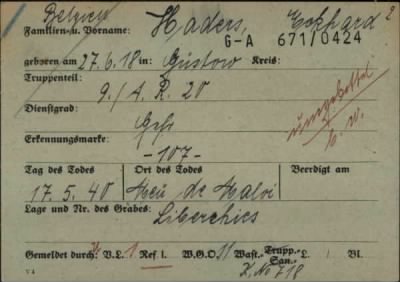 Belgien
Familien- u. Vorname: Haders, Eckhard
G-A 671/0424
geboren am 27.6.18 in: Güstow Kreis:
Truppenteil: 9./A.R. 20
Dienstgrad: Gefr
Erkennungsmarke: -107-
umgebettet
Tag des Todes Ort des Todes Beerdigt am
17.5.40
Lage und Nr. des Grabes: Liberchies
Gemeldet durch: V.L. 1 Ref 1. W.G.O 11 Wast.-Trupp.-San.- L. Bl.
K. No 718
V 4